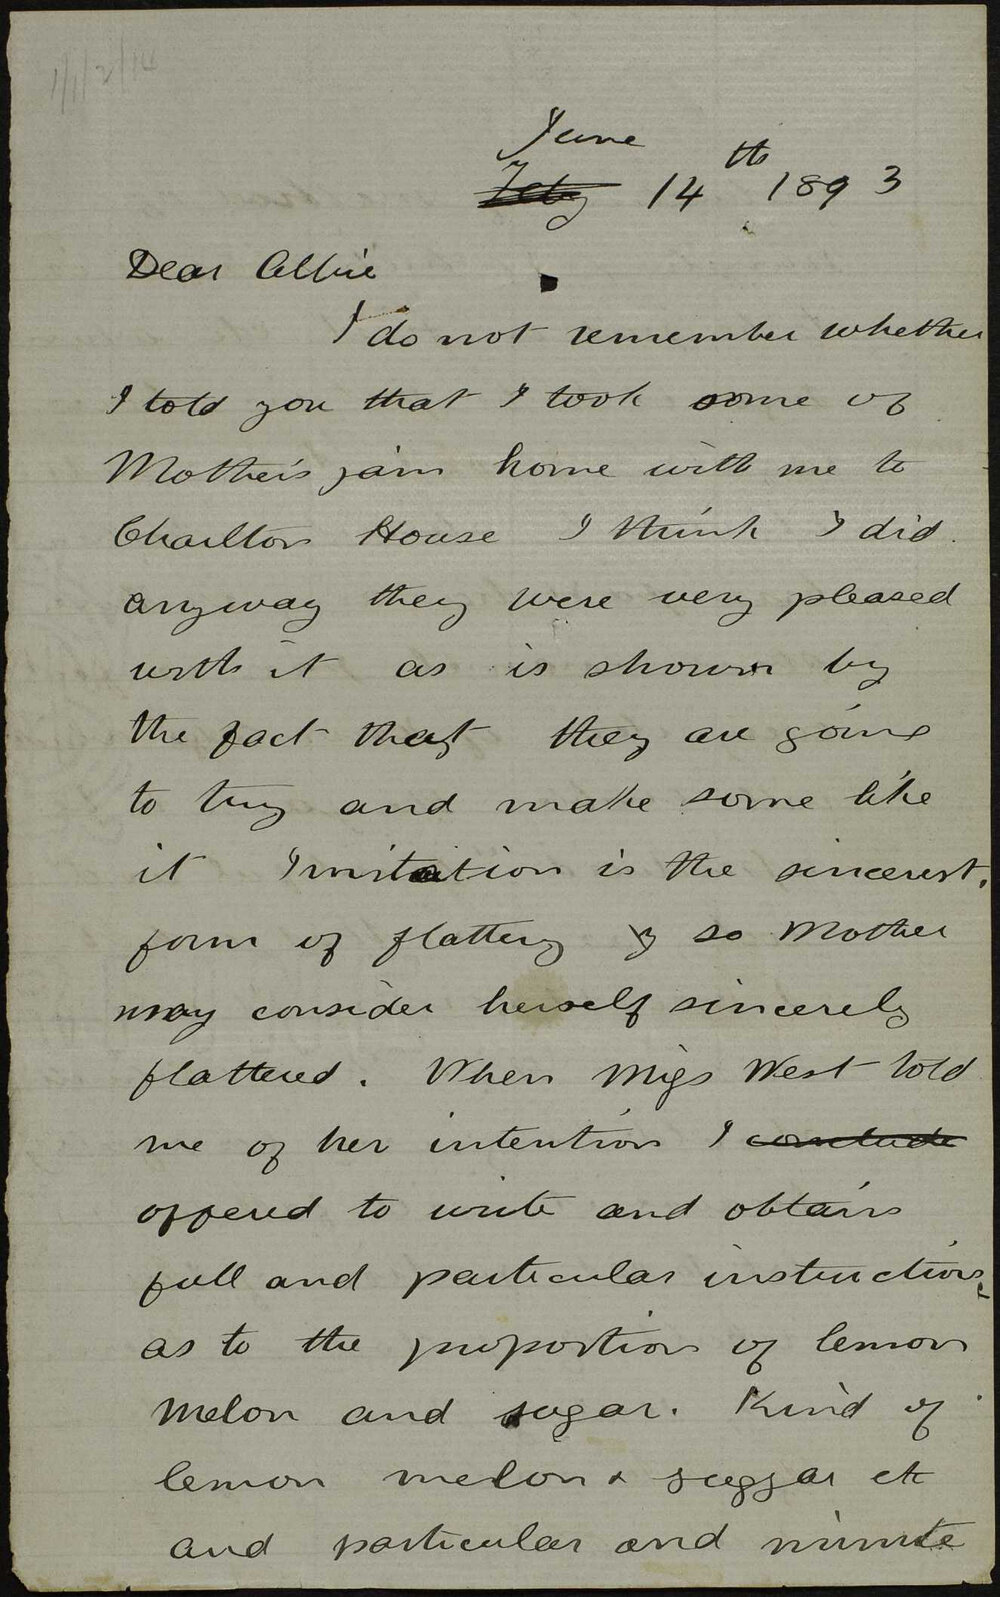 1/1/2/14
June
Feby 14th 1893
Dear Allie
I do not remember whether
I told you that I took some of
Mother's jam home with me to
Charlton House I think I did
anyway they were very pleased
with it as is shown by
the fact that they are going
to try and make some like
it Imitation is the sincerest
form of flattery & so Mother
may consider herself sincerely
flattered. When Miss West told
me of her intention I conclude
offered to write and obtain
full and particular instructions
as to the proportion of lemon
melon and sugar. Kind of
lemon melon & suggar etc
and particular and minute